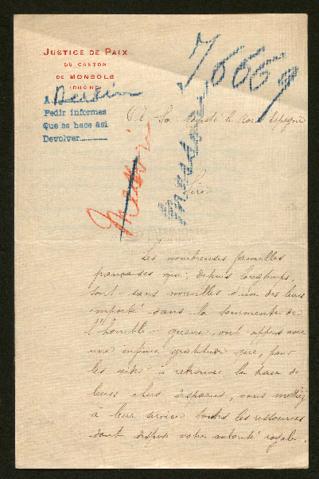 JUSTICE DE PAIX
DU CANTON
DE MONSOLS
(RHÔNE)
75559
A Berlin
Pedir informes
Que se hace asi
Devolver
A Sa Majesté le Roi d'Espagne
Sire
Les nombreuses familles
françaises qui, depuis longtemps
sont sans nouvelles d'un des leurs
emporté dans la tourmente de
l'horrible guerre, ont appris avec
une infinie gratitude que, pour
les aider à retrouver la trace de
leurs chers disparus, vous mettiez
à leur service toutes les ressources
dont dispose votre autorité royale.